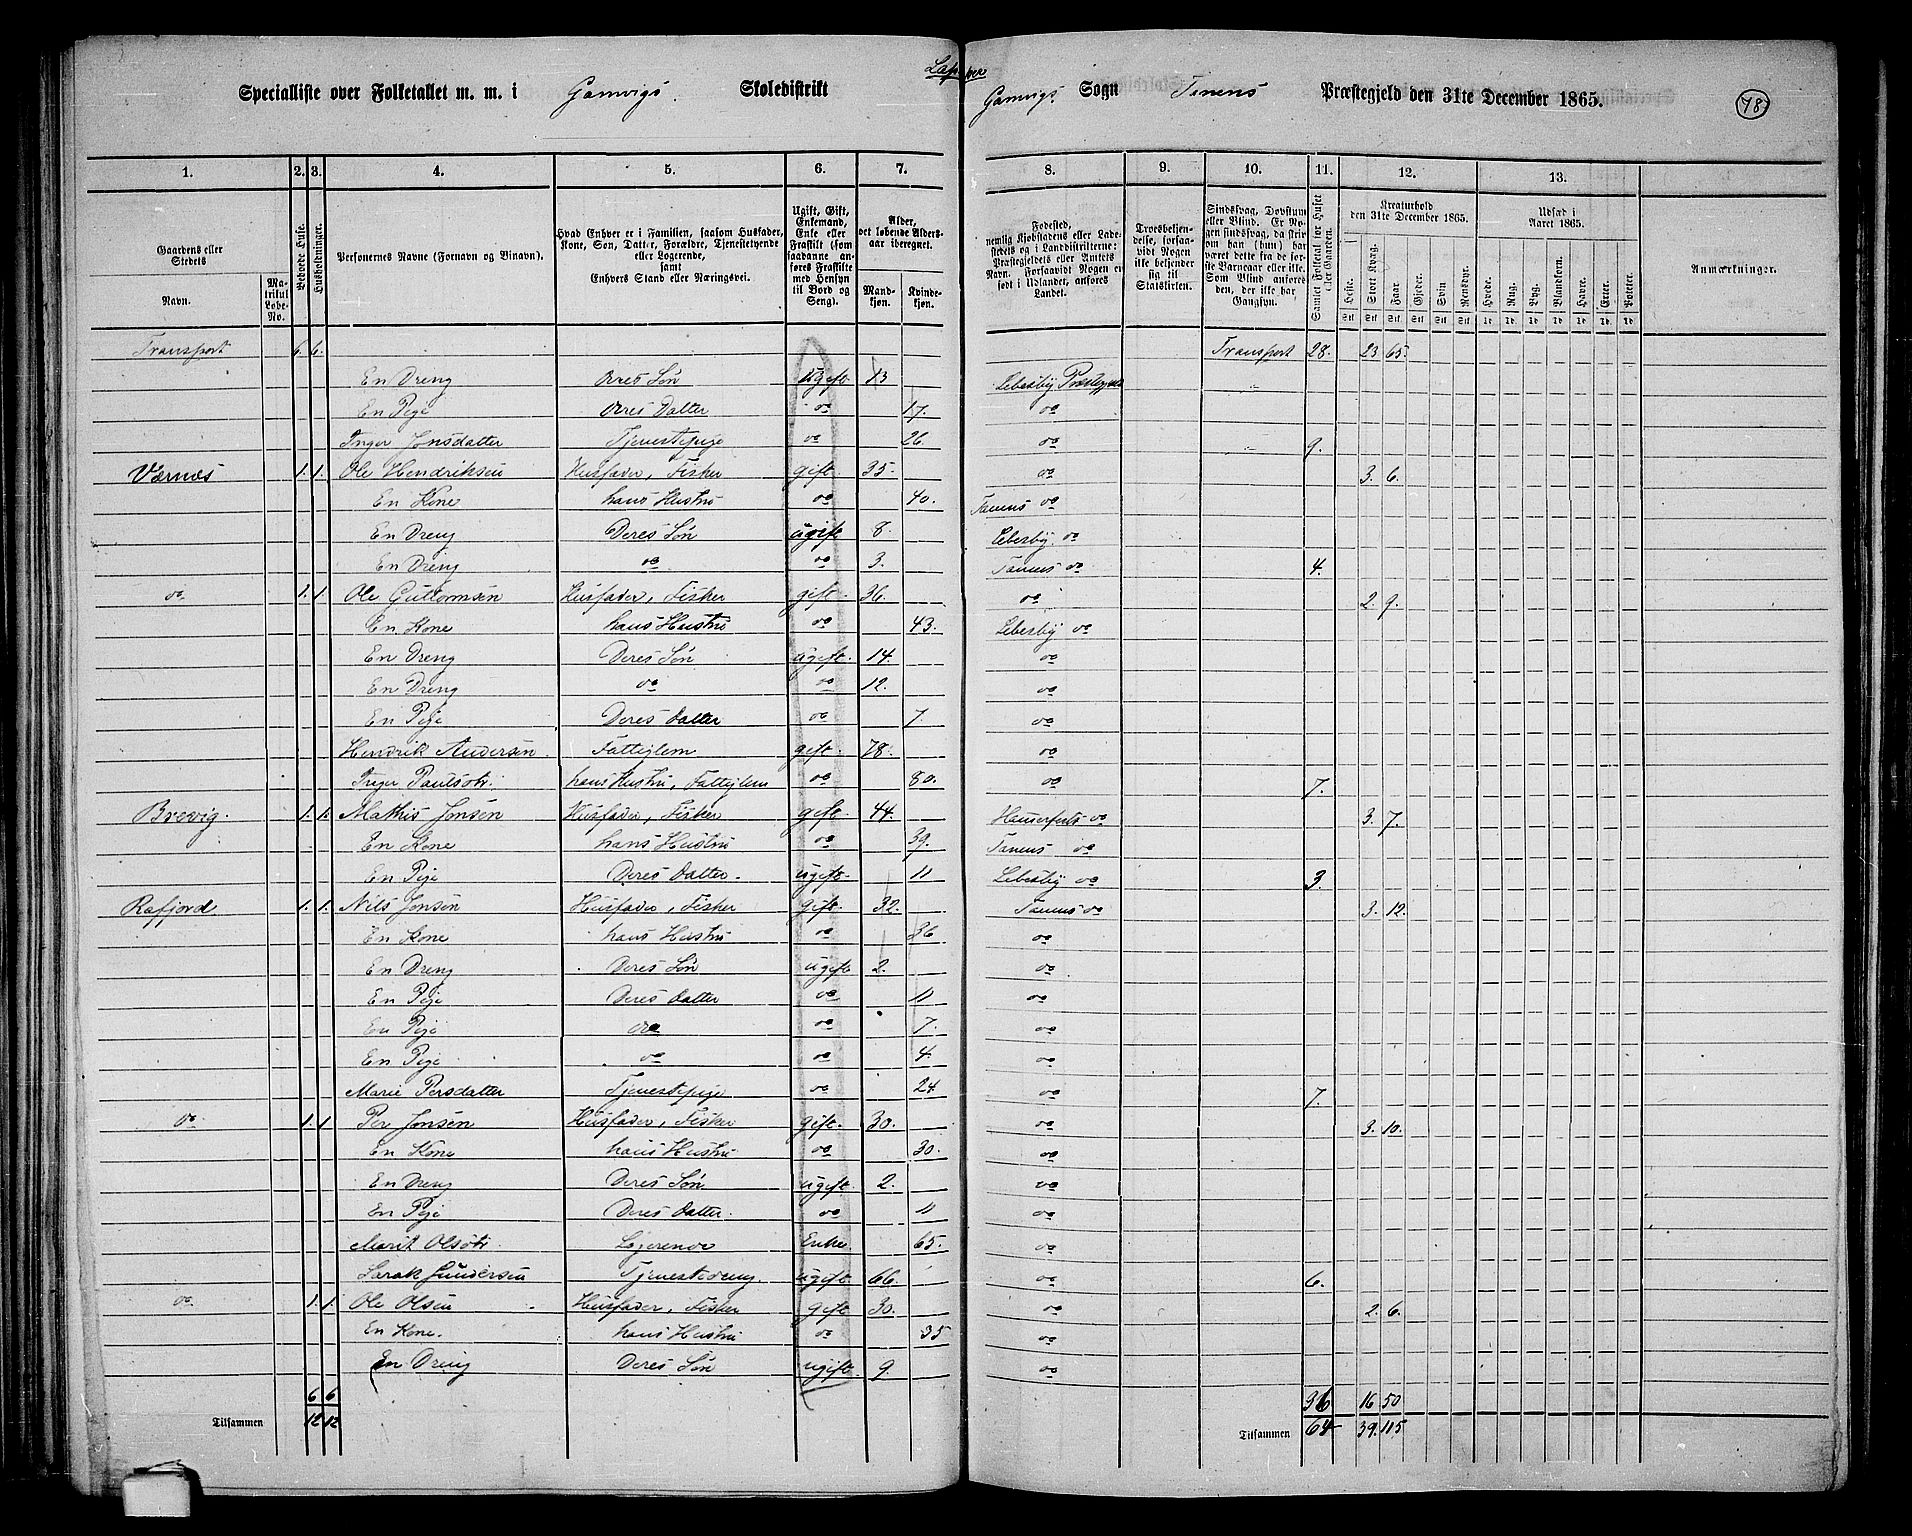 Lapper
Specialliste over Folketallet m. m. i Gamvigs Skoledistrikt Gamvigs Sogn Tanens Præstegjeld den 31te December 1865. 78
1. 2. 3. 4. 5. 6. 7. 8. 9. 10. 11. 12. 13.
Gaardens eller Stedets
Navn.
Matrikul Løbe-No.
Beboede Huse.
Husholdninger.
Personernes Navne (Fornavn og Binavn).
Hvad Enhver er i Familien, saasom Husfader, Kone, Søn, Datter, Forældre, Tjenestetyende eller Logerende, samt Enhvers Stand eller Næringsvei.
Ugift, Gift, Enkemand, Enke eller Fraskilt (som saadanne anføres Fraskilte med Hensyn til Bord og Seng).
Alder, det løbende Aldersaar iberegnet.
Mandkjøn. Kvindekjøn.
Fødested, nemlig Kjøbstadens eller Ladestedets og i Landdistrikterne: Præstegjeldets eller Amtets Navn. Forsaavidt Nogen er født i Udlandet, anføres Landet.
Troesbekjendelse, forsaavidt Nogen ikke bekjender sig til Statskirken.
Sindssvag, Døvstum eller Blind. Er Nogen sindssvag, da skrives om han (hun) har været dette fra de første Barneaar eller ikke. Som Blind anføres den, der ikke har Gangsyn.
Samlet Folketal for Huset eller Gaarden.
Kreaturhold den 31te December 1865.
Heste. Stort Kvæg. Faar. Gjeder. Svin. Rensdyr.
Udsæd i Aaret 1865.
Hvede. Rug. Byg. Blandkorn. Havre. Erter. Poteter.
Anmærkninger.
Transport 6. 6. Transport 28. 23 65.
En Dreng Deres Søn ugift 13 Lebesby Præstegjeld
En Pige Deres Datter do 17. do
Inger Jonsdatter Tjenestepige do 26 do 9.
Værnæs 1. 1. Ole Hendriksen Husfader, Fisker gift 35. do 3. 6.
En Kone hans Hustru do 40. Tanens do
En Dreng Deres Søn ugift 8. Lebesby do
En Dreng do do 3. Tanens do 4.
do 1. 1. Ole Guttomsen Husfader, Fisker gift 36. do 2. 9.
En Kone hans Hustru do 43. Lebesby do
En Dreng Deres Søn ugift. 14. do
En Dreng do do 12. do
En Pige Deres Datter do 7. do
Hendrik Andersen Fattiglem gift. 78. do
Inger Paulsdtr. hans Hustru, Fattiglem do 80. do 7.
Brevig. 1. 1. Mathis Jonsen Husfader, Fisker gift. 44. Hamerfests do 3. 7.
En Kone hans Hustru do 39. Tanens do
En Pige Deres Datter. ugift. 11 Lebesby do 3.
Rafjord 1. 1. Nils Jonsen Husfader, Fisker gift. 32. Tanens do 3. 12.
En Kone hans Hustru do 36 do
En Dreng Deres Søn ugift 2. do
En Pige Deres Datter do 11 do
En Pige do do 7. do
En Pige do do 4. do
Marie Persdatter Tjenestepige do 24. do 7.
do 1. 1. Per Jonsen Husfader, Fisker gift. 30. do 3. 10.
En Kone hans Hustru do 30. do
En Dreng Deres Søn ugift. 2. do
En Pige Deres Datter. do 11 do
Marit Olsdtr. Logerende Enke. 65. do
Tjenestedreng. ugift 66. do 6.
do 1. 1. Ole Olsen Husfader, Fisker gift 30. do 2. 6.
En Kone. hans Hustru do 35 do
En Dreng Deres Søn ugift. 9. do
6 6 36 16 50
Tilsammen 12 12 Tilsammen 64 39. 115